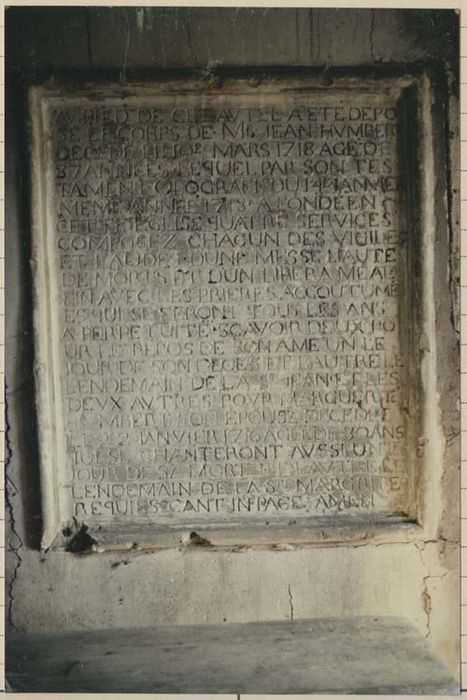 AV PIED DE CET AVTEL A ETE DEPO
SE LE CORPS DE Mr JEAN HVMBER
DECEDE LE MARS 1718 AGE DE
87 ANNEES LEQUEL PAR SON TES
TAMENT OLOGRAFE DU 14E IANVIE
MEME ANNEE 1718 A FONDE EN
CETTE EGLISE QUATRE SERVICES
COMPOSEZ CHACUN DES VIGILES
ET LAUDES DUNE MESSE HAUTE
DE MORTS ET DUN LIBERA ME A LA
FIN AVEC LES PRIERES ACCOUTUME
ES QUI SE FERONT TOUS LES ANS
A PERPETUITE SCAVOIR DEUX PO
UR LE REPOS DE SON AME UN LE
JOUR DE SON DECES ET LAUTRE LE
LENDEMAIN DE LA St JEAN ET LES
DEUX AUTRES POUR MARGUERITE
LAMBERT SON EPOUSE DECEDEE
LE 22 IANVIER 1716 AGEE DE 80 ANS
QUI SE CHANTERONT AUSSI UN LE
JOUR DE SA MORT ET LAUTRE LE
LENDEMAIN DE LA Ste MARGRITE
REQUIESCANT IN PACE AMEN